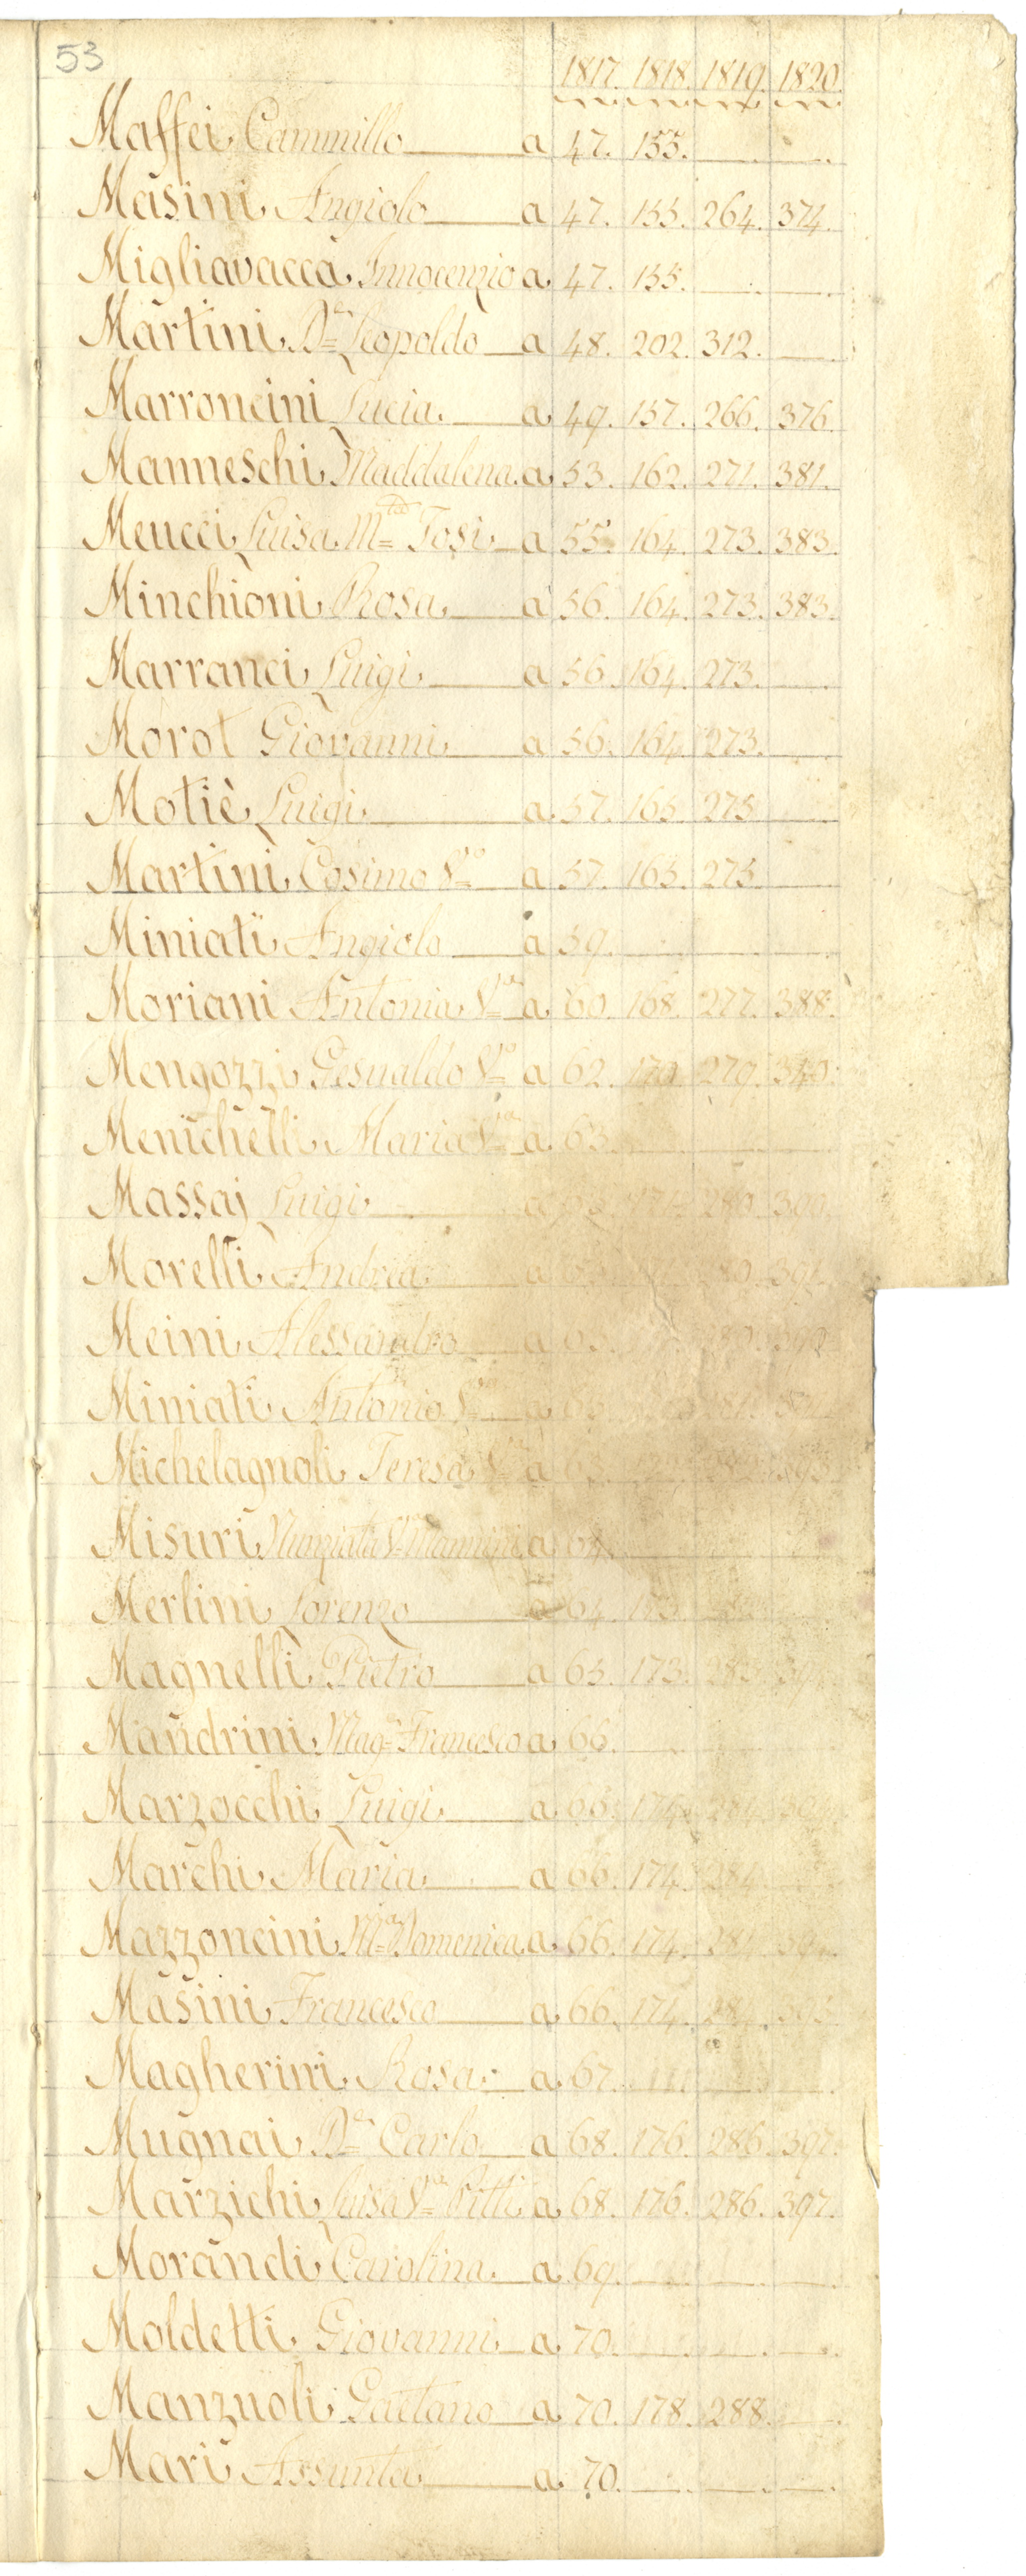 53
1817. 1818. 1819. 1820.
Maffei Cammillo a 47. 155.
Masini Angiolo a 47. 155. 264. 374.
Migliavacca Innocenzio a 47. 155.
Martini D.r Leopoldo a 48. 202. 312.
Marroncini Lucia a 49. 157. 266. 376.
Manneschi Maddalena a 53. 162. 271. 381.
Meucci Luisa M.ta Tosi a 55. 164. 273. 383.
Minchioni Rosa a 56. 164. 273. 383.
Marranci Luigi a 56. 164. 273.
Morot Giovanni a 56. 164. 273.
Motiè Luigi a 57. 165. 275.
Martini Cosimo V.o a 57. 165. 275.
Miniati Angiolo a 59.
Moriani Antonia V.a a 60. 168. 277. 388.
Mengozzi Gesualdo V.o a 62. 170. 279. 340.
Menichelli Maria V.a a 63.
Massaj Luigi a 280. 390.
Morelli Andrea a
Meini Alessandro a
Miniati Antonio a
Michelagnoli Teresa a
Misuri Nunziata V.a a
Merlini Lorenzo a 64. 173.
Magnelli Pietro a 65. 173. 283.
Mandrini Mag.e Francesco a 66.
Marzocchi Luigi a 66. 174. 284.
Marchi Maria a 66. 174. 284.
Mazzoncini M.a Domenica a 66. 174. 284.
Masini Francesco a 66. 174. 284.
Magherini Rosa a 67.
Mugnai D.r Carlo a 68. 176. 286. 397.
Marzichi Luisa V.a Pitti a 68. 176. 286. 397.
Morandi Carolina a 69.
Moldetti Giovanni a 70.
Manzuoli Gaetano a 70. 178. 288.
Mari Assunta a 70.